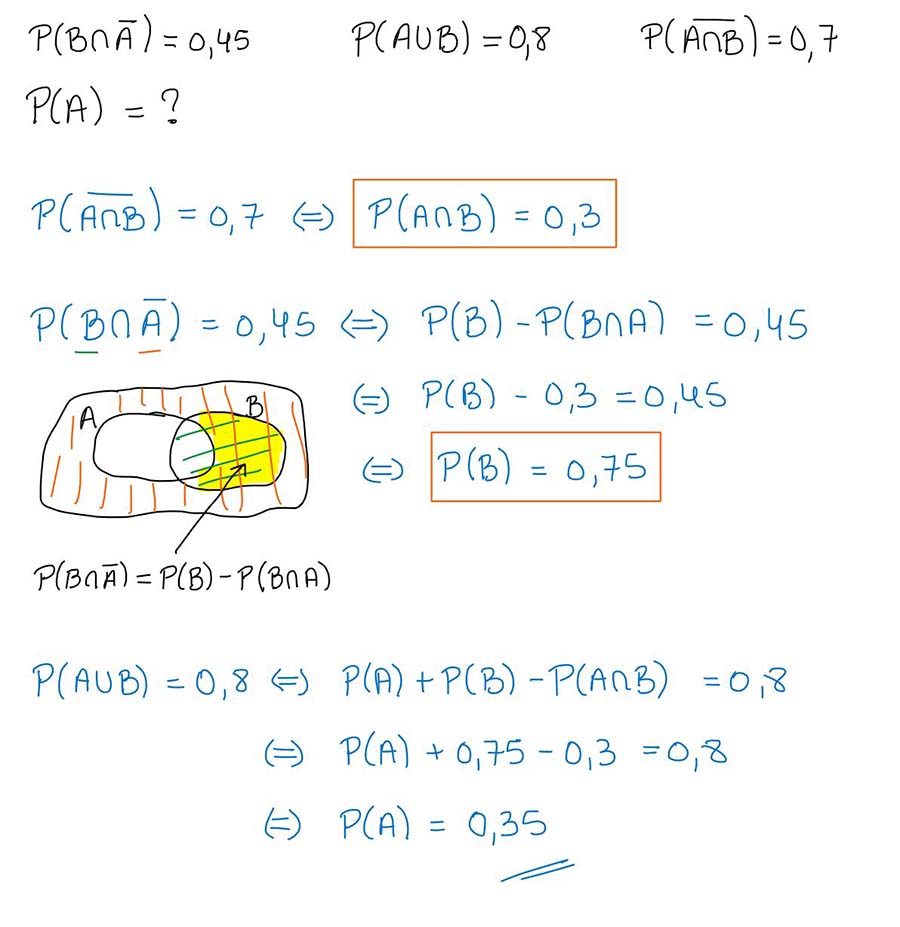 P(B∩A̅) = 0,45 P(A∪B) = 0,8 P(A̅∩̅B̅) = 0,7
P(A) = ?
P(A̅∩̅B̅) = 0,7 ⇔ P(A∩B) = 0,3
P(B∩A̅) = 0,45 ⇔ P(B) - P(B∩A) = 0,45
⇔ P(B) - 0,3 = 0,45
A B
⇔ P(B) = 0,75
P(B∩A̅) = P(B) - P(B∩A)
P(A∪B) = 0,8 ⇔ P(A) + P(B) - P(A∩B) = 0,8
⇔ P(A) + 0,75 - 0,3 = 0,8
⇔ P(A) = 0,35